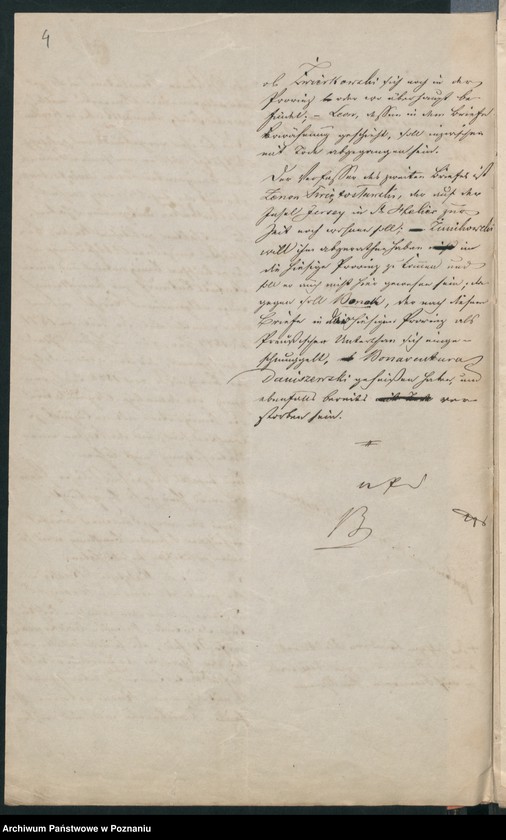 4
ob Zwierkowski sich noch in der
Provinz oder wo überhaupt be-
findet; – dessen in dem Briefe
Erwähnung geschieht, soll inzwischen
mit Tode abgegangen sein.
Der Verfasser des zweiten Briefes ist
Zenon Swiętosławski, der auf der
Insel Jersey in St Helier zur
Zeit noch wohnen soll;
will ihm abgerathen haben in
die hiesige Provinz zu kommen und
soll er auch nicht hier gewesen sein, da
gegen soll, der nach diesem
Briefe in hiesigen Provinz als
Preußischer Unterthan sich einge-
schmuggelt, Bonaventura
Daniszewski geheißen haben, und
ebenfalls bereits ver-
storben sein.
B
Archiwum Państwowe w Poznaniu